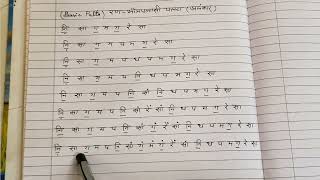 (Basic राग-भीमपलासी पल्टा (अलंकार)
नि॒ सा ग॒ म ग॒ रे सा
नि॒ सा ग॒ म प म ग॒ रे सा
नि॒ सा ग॒ म प ध प म ग॒ रे सा
नि॒ सा ग॒ म प नि॒ ध प म ग॒ रे सा
नि॒ सा ग॒ म प नि॒ सां रें सां नि॒ ध प म ग॒ रे सा
नि॒ सा ग॒ म प नि॒ सां गं॒ रें सां नि॒ ध प म ग॒ रे सा
नि॒ सा ग॒ म प नि॒ सां गं॒ मं गं॒ रें सां नि॒ ध प म ग॒ रे सा